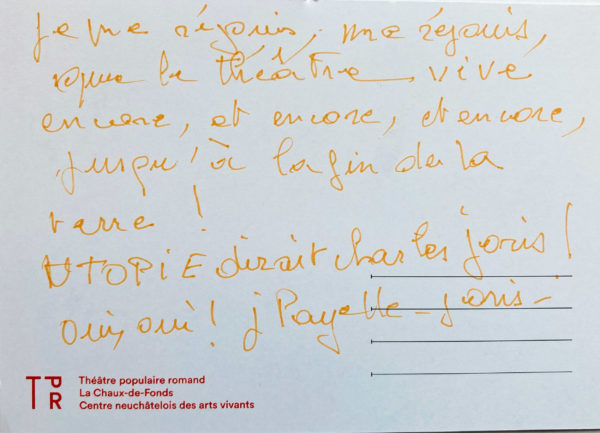 je me réjouis, me réjouis,
que le théâtre vive
encore, et encore, et encore,
jusqu'à la fin de la
terre !
UTOPIE dirait Charles Joris !
oui, oui ! j Payelle - Joris -
TPR
Théâtre populaire romand
La Chaux-de-Fonds
Centre neuchâtelois des arts vivants